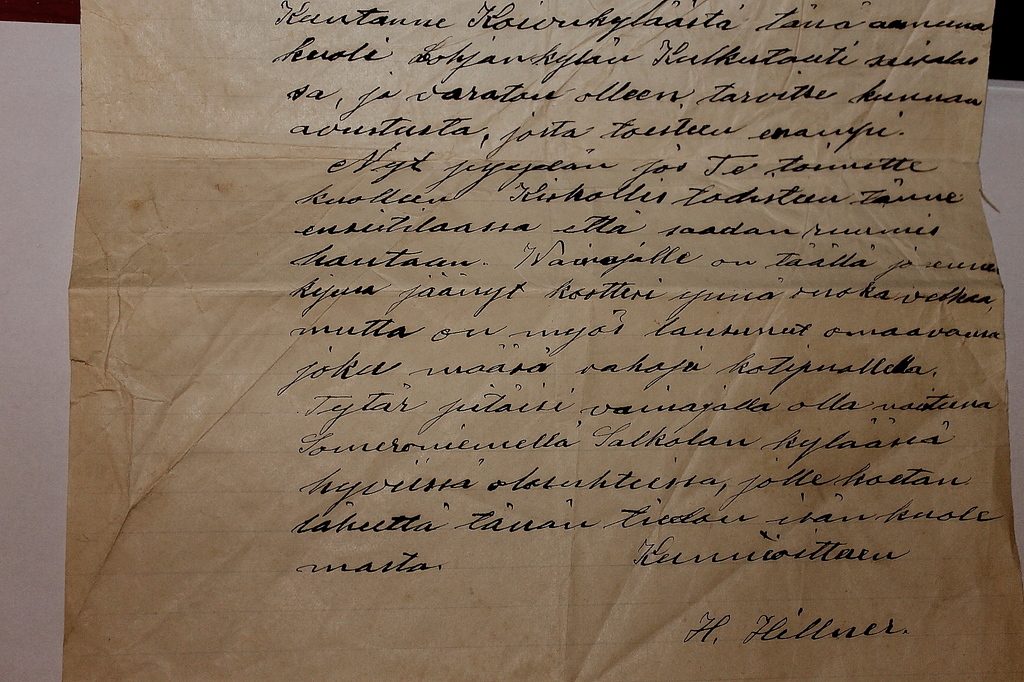 Kustanne Koivukyläästä tänä aamuna
kuoli Lohjankylän Kulkutauti sairalas
sa, ja varaton olleen, tarvitse kunnan
avustusta, josta toesteen enämpi.
Nyt pyydän jos Te toimitte
kuolleen Kirkollis todisteen tänne
ensitilaassa että saadan ruumis
hautaan. Vainajalle on täällä
jäänyt kortteri ynnä ruoka velkaa
mutta on myös lausunut omaavansa
joku määrä rahoja kotipuolella.
Tytär pitäisi vainajalla olla naituna
Someroniemellä Salkolan kylääsiä
hyviissä olosuhteissa, jolle koetan
lähettä tämän tiedon isän kuole
masta. Kunnioittaen
H. Hillner.